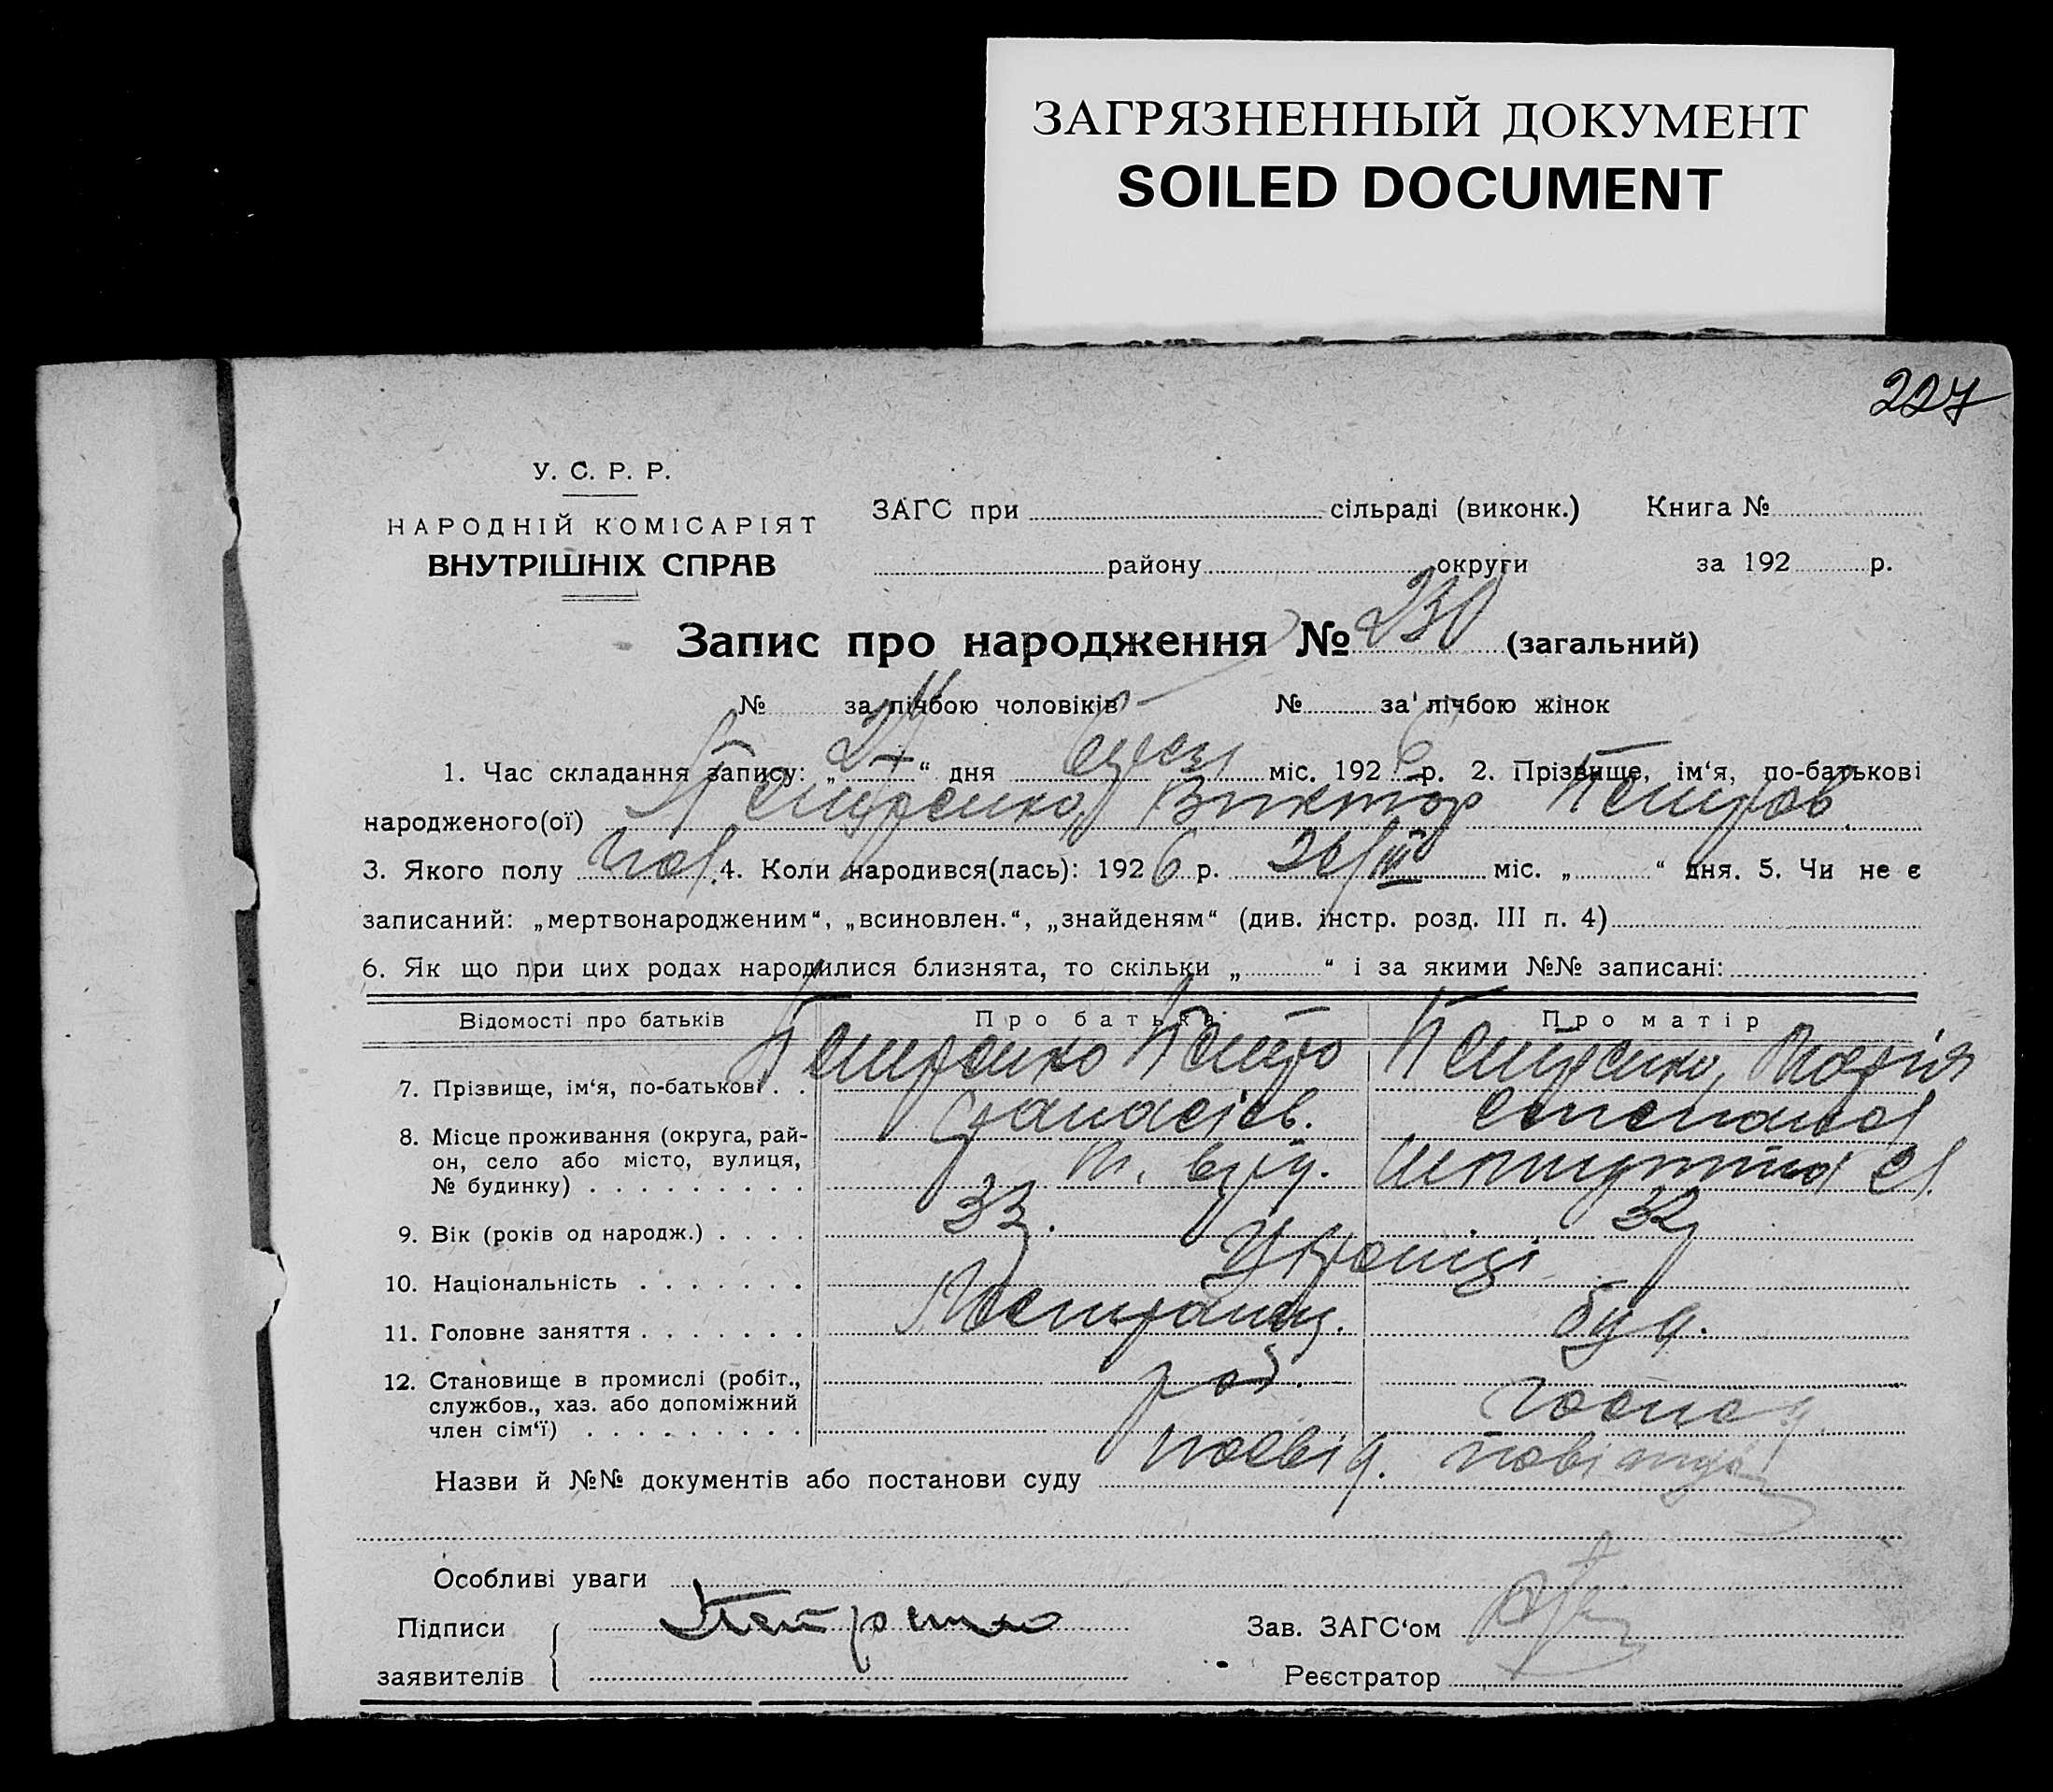 ЗАГРЯЗНЕННЫЙ ДОКУМЕНТ
SOILED DOCUMENT
227
У. С. Р. Р.
НАРОДНІЙ КОМІСАРІЯТ
ВНУТРІШНІХ СПРАВ
ЗАГС при сільраді (виконк.) Книга №
району округи за 192 р.
Запис про народження № 230 (загальний)
№ за лічбою чоловіків № за лічбою жінок
1. Час складання запису: „ “ дня міс. 1926 р. 2. Прізвище, ім‘я, по-батькові
народженого(ої) Петренко, Виктор Петров.
3. Якого полу чол. 4. Коли народився(лась): 1926 р. 26/ міс. „ “ дня. 5. Чи не є
записаний: „мертвонародженим“, „всиновлен.“, „знайденям“ (див. інстр. розд. III п. 4)
6. Як що при цих родах народилися близнята, то скільки „ “ і за якими №№ записані:
Відомості про батьків Про батька Про матір
7. Прізвище, ім‘я, по-батькові . . Петренко Петро Петренко, Марія
Панасів. Степанов
8. Місце проживання (округа, рай-
он, село або місто, вулиця,
№ будинку) . . . . . . . . .
9. Вік (років од народж.) . . . . 33. 32
10. Національність . . . . . . . Українці
11. Головне заняття . . . . . . .
12. Становище в промислі (робіт.,
службов., хаз. або допоміжний
член сім‘ї) . . . . . . . . . роб. господ.
Назви й №№ документів або постанови суду посвід.
Особливі уваги
Підписи Петренко Зав. ЗАГС‘ом
заявителів Реєстратор